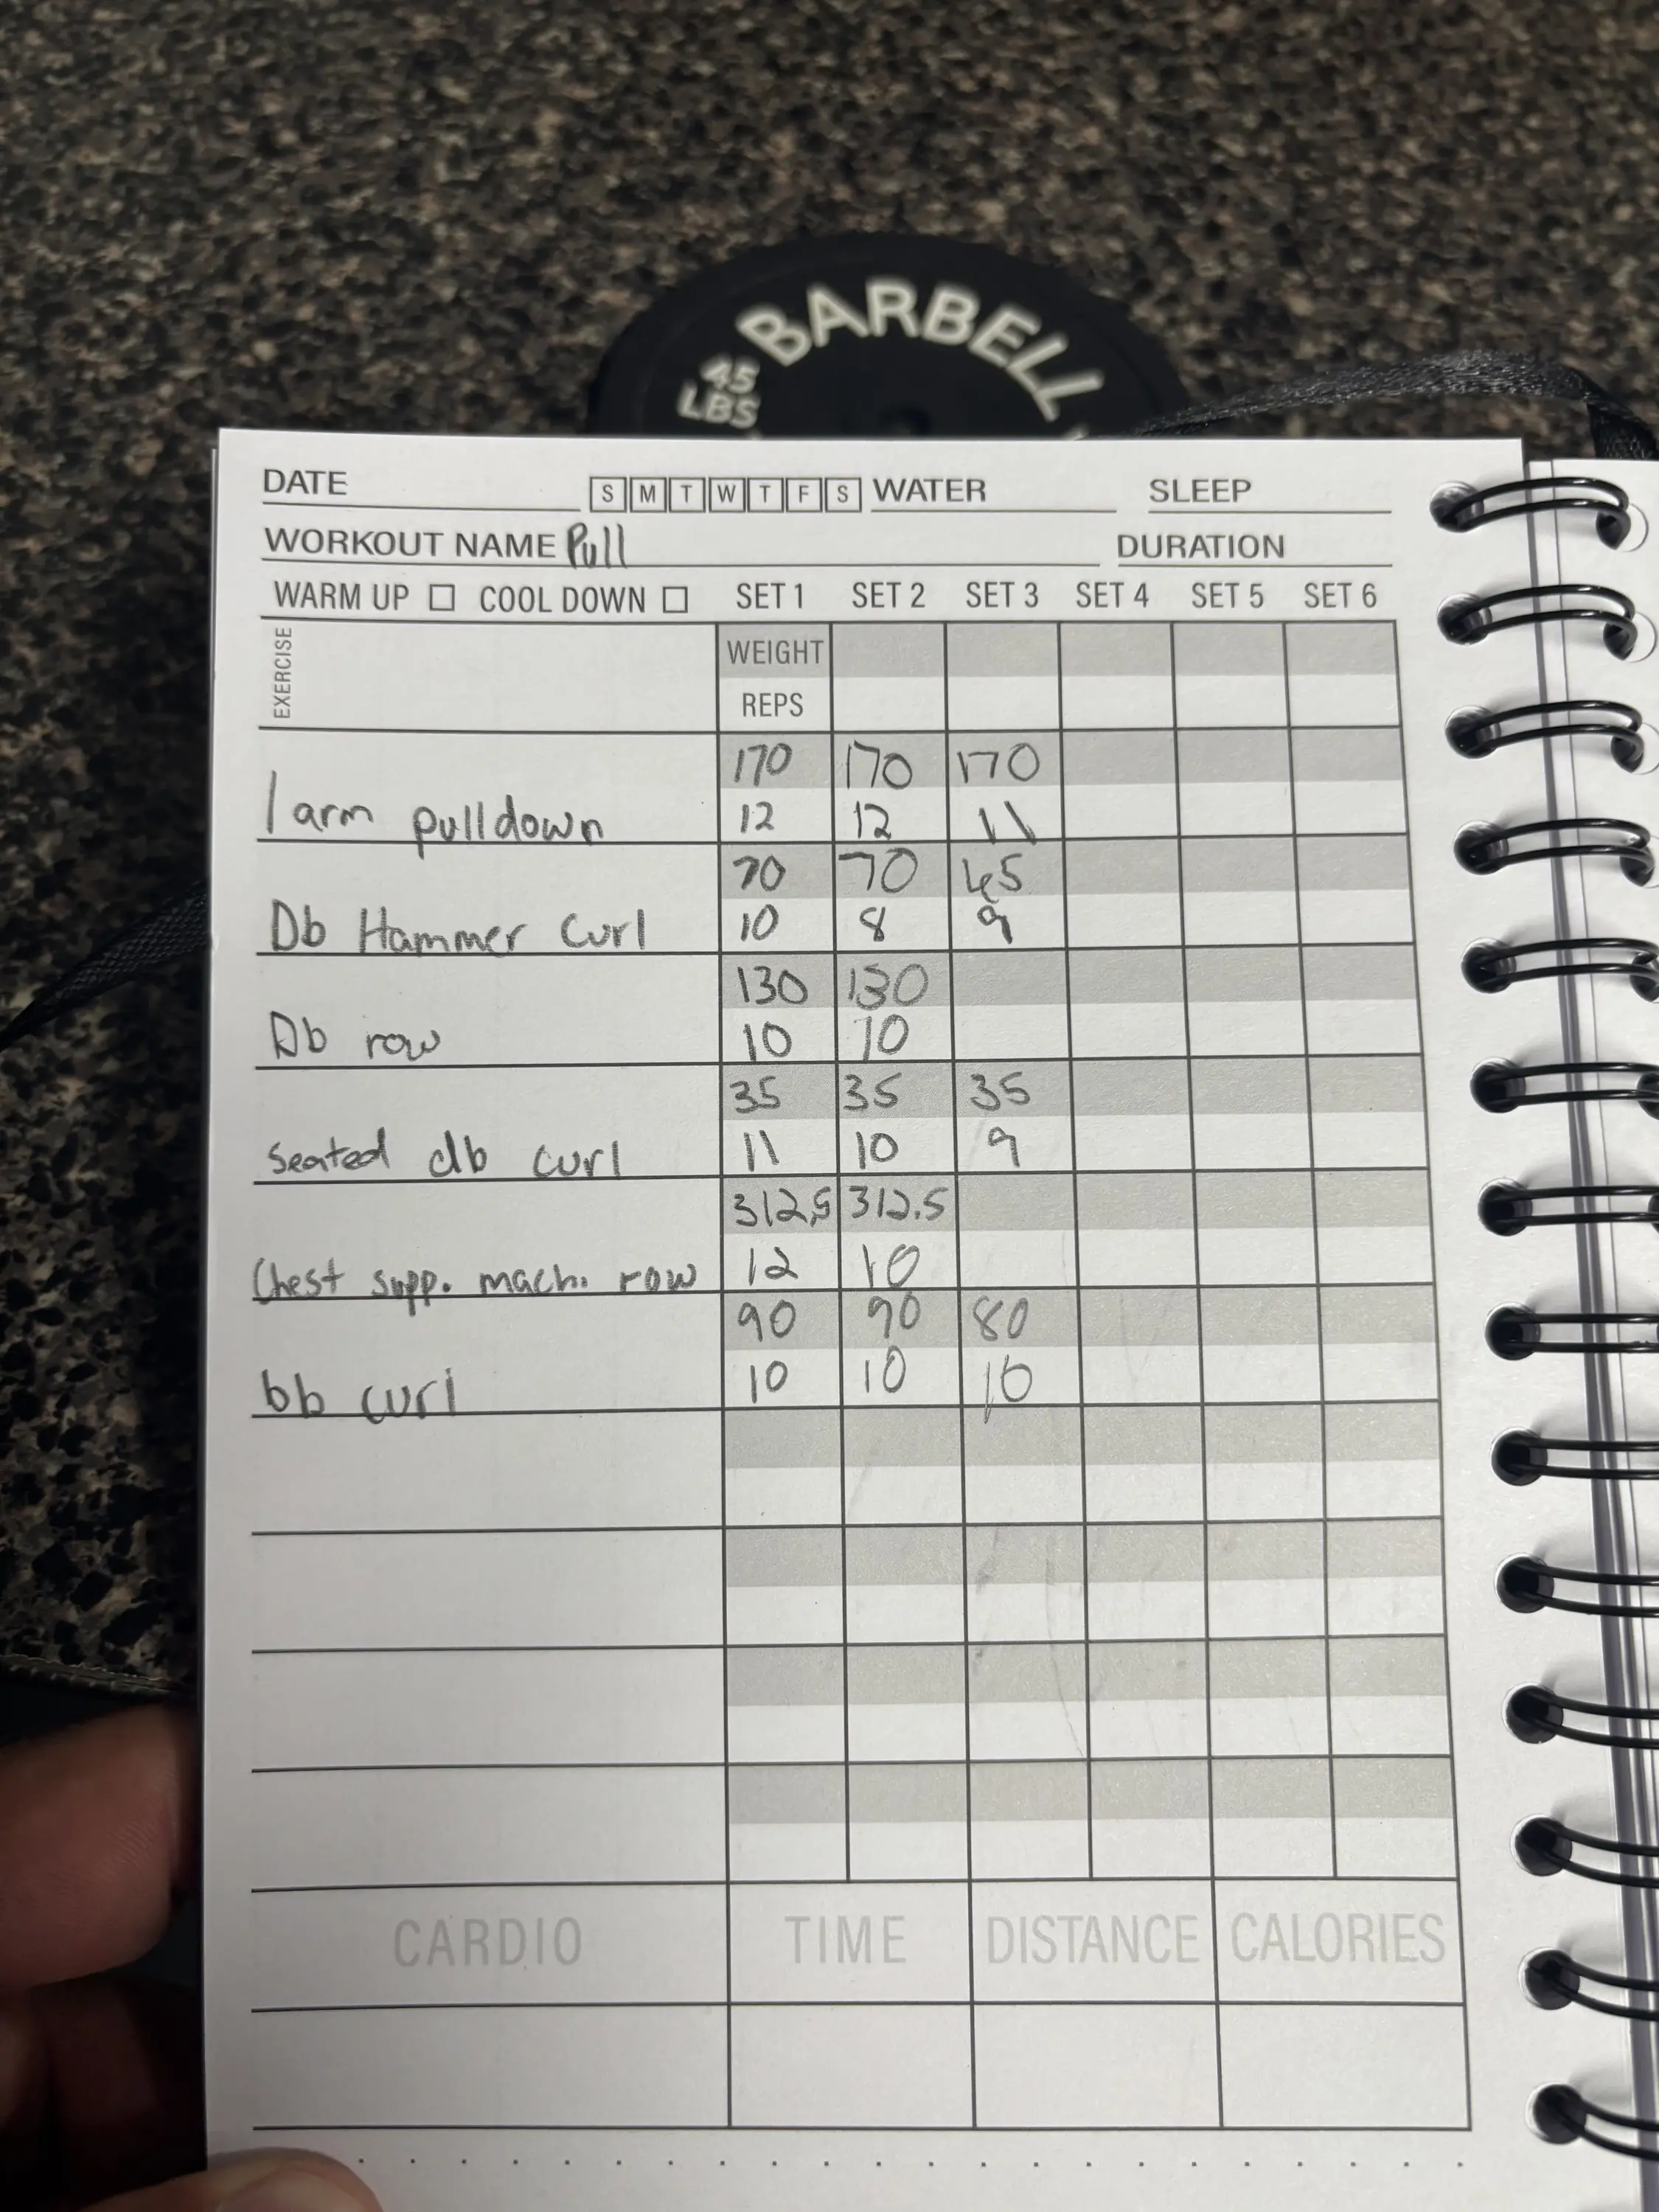 BARBELL
45
LBS
DATE S M T W T F S WATER SLEEP
WORKOUT NAME Pull DURATION
WARM UP COOL DOWN SET 1 SET 2 SET 3 SET 4 SET 5 SET 6
EXERCISE
WEIGHT
REPS
170 170 170
1 arm pulldown 12 12 11
70 70 45
Db Hammer Curl 10 8 9
130 130
Db row 10 10
35 35 35
Seated db curl 11 10 9
312.5 312.5
Chest supp. mach. row 12 10
90 90 80
bb curl 10 10 10
CARDIO TIME DISTANCE CALORIES